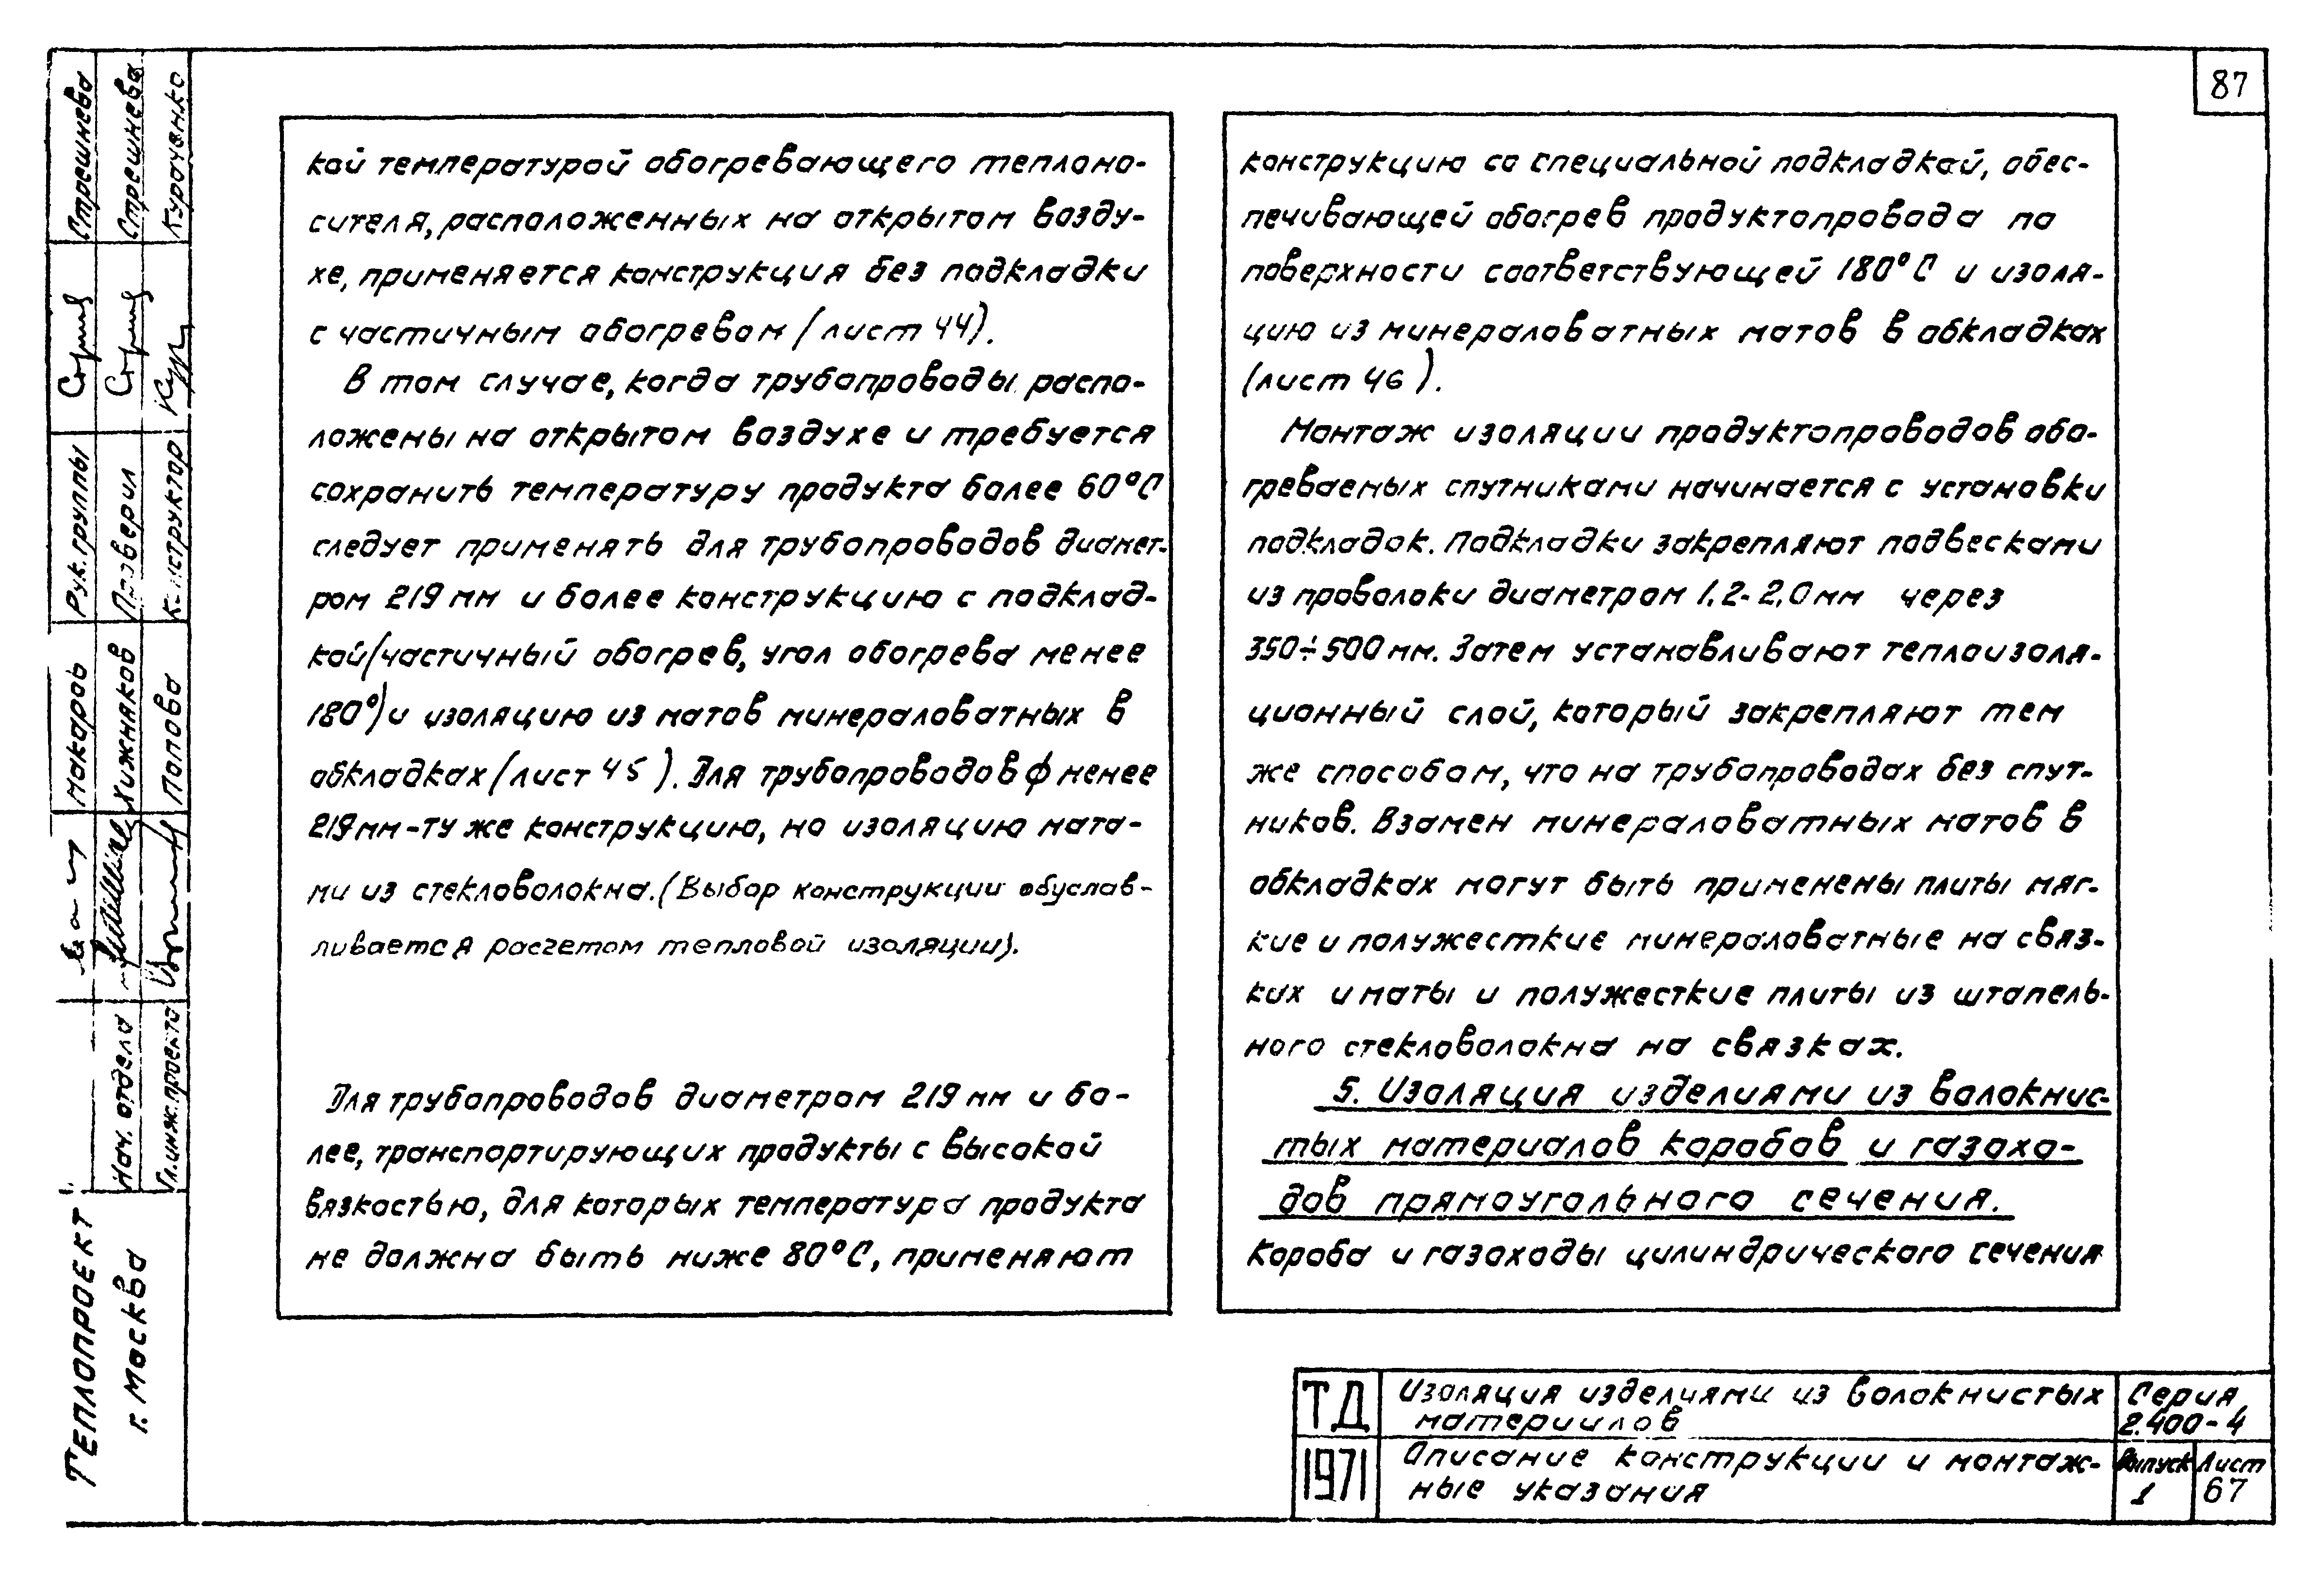 87
кой температурой обогревающего теплоно-
сителя, расположенных на открытом возду-
хе, применяется конструкция без подкладки
с частичным обогревом (лист 44).
В том случае, когда трубопроводы распо-
ложены на открытом воздухе и требуется
сохранить температуру продукта более 60°С
следует применять для трубопроводов диамет-
ром 219 мм и более конструкцию с подклад-
кой (частичный обогрев, угол обогрева менее
180°) и изоляцию из матов минераловатных в
обкладках (лист 45). Для трубопроводов ф менее
219 мм - ту же конструкцию, но изоляцию мата-
ми из стекловолокна. (Выбор конструкции обуслав-
ливается расчетом тепловой изоляции).
Для трубопроводов диаметром 219 мм и бо-
лее, транспортирующих продукты с высокой
вязкостью, для которых температура продукта
не должна быть ниже 80°С, применяют
конструкцию со специальной подкладкой, обес-
печивающей обогрев продуктопровода по
поверхности соответствующей 180°С и изоля-
цию из минераловатных матов в обкладках
(лист 46).
Монтаж изоляции продуктопроводов обо-
греваемых спутниками начинается с установки
подкладок. Подкладки закрепляют подвесками
из проволоки диаметром 1,2-2,0 мм через
350÷500 мм. Затем устанавливают теплоизоля-
ционный слой, который закрепляют тем
же способом, что на трубопроводах без спут-
ников. Взамен минераловатных матов в
обкладках могут быть применены плиты мяг-
кие и полужесткие минераловатные на связ-
ких и маты и полужесткие плиты из штапель-
ного стекловолокна на связках.
5. Изоляция изделиями из волокнис-
тых материалов коробов и газохо-
дов прямоугольного сечения.
Короба и газоходы цилиндрического сечения
Теплопроект
г. Москва
Нач. отдела
Гл. инж. проекта
Макаров
Хижняков
Попова
Рук. группы
Проверил
Конструктор
Стрешнева
Стрешнева
Куроченко
ТД
1971
Изоляция изделиями из волокнистых
материалов
Описание конструкции и монтаж-
ные указания
Серия
2.400-4
Выпуск
1
Лист
67